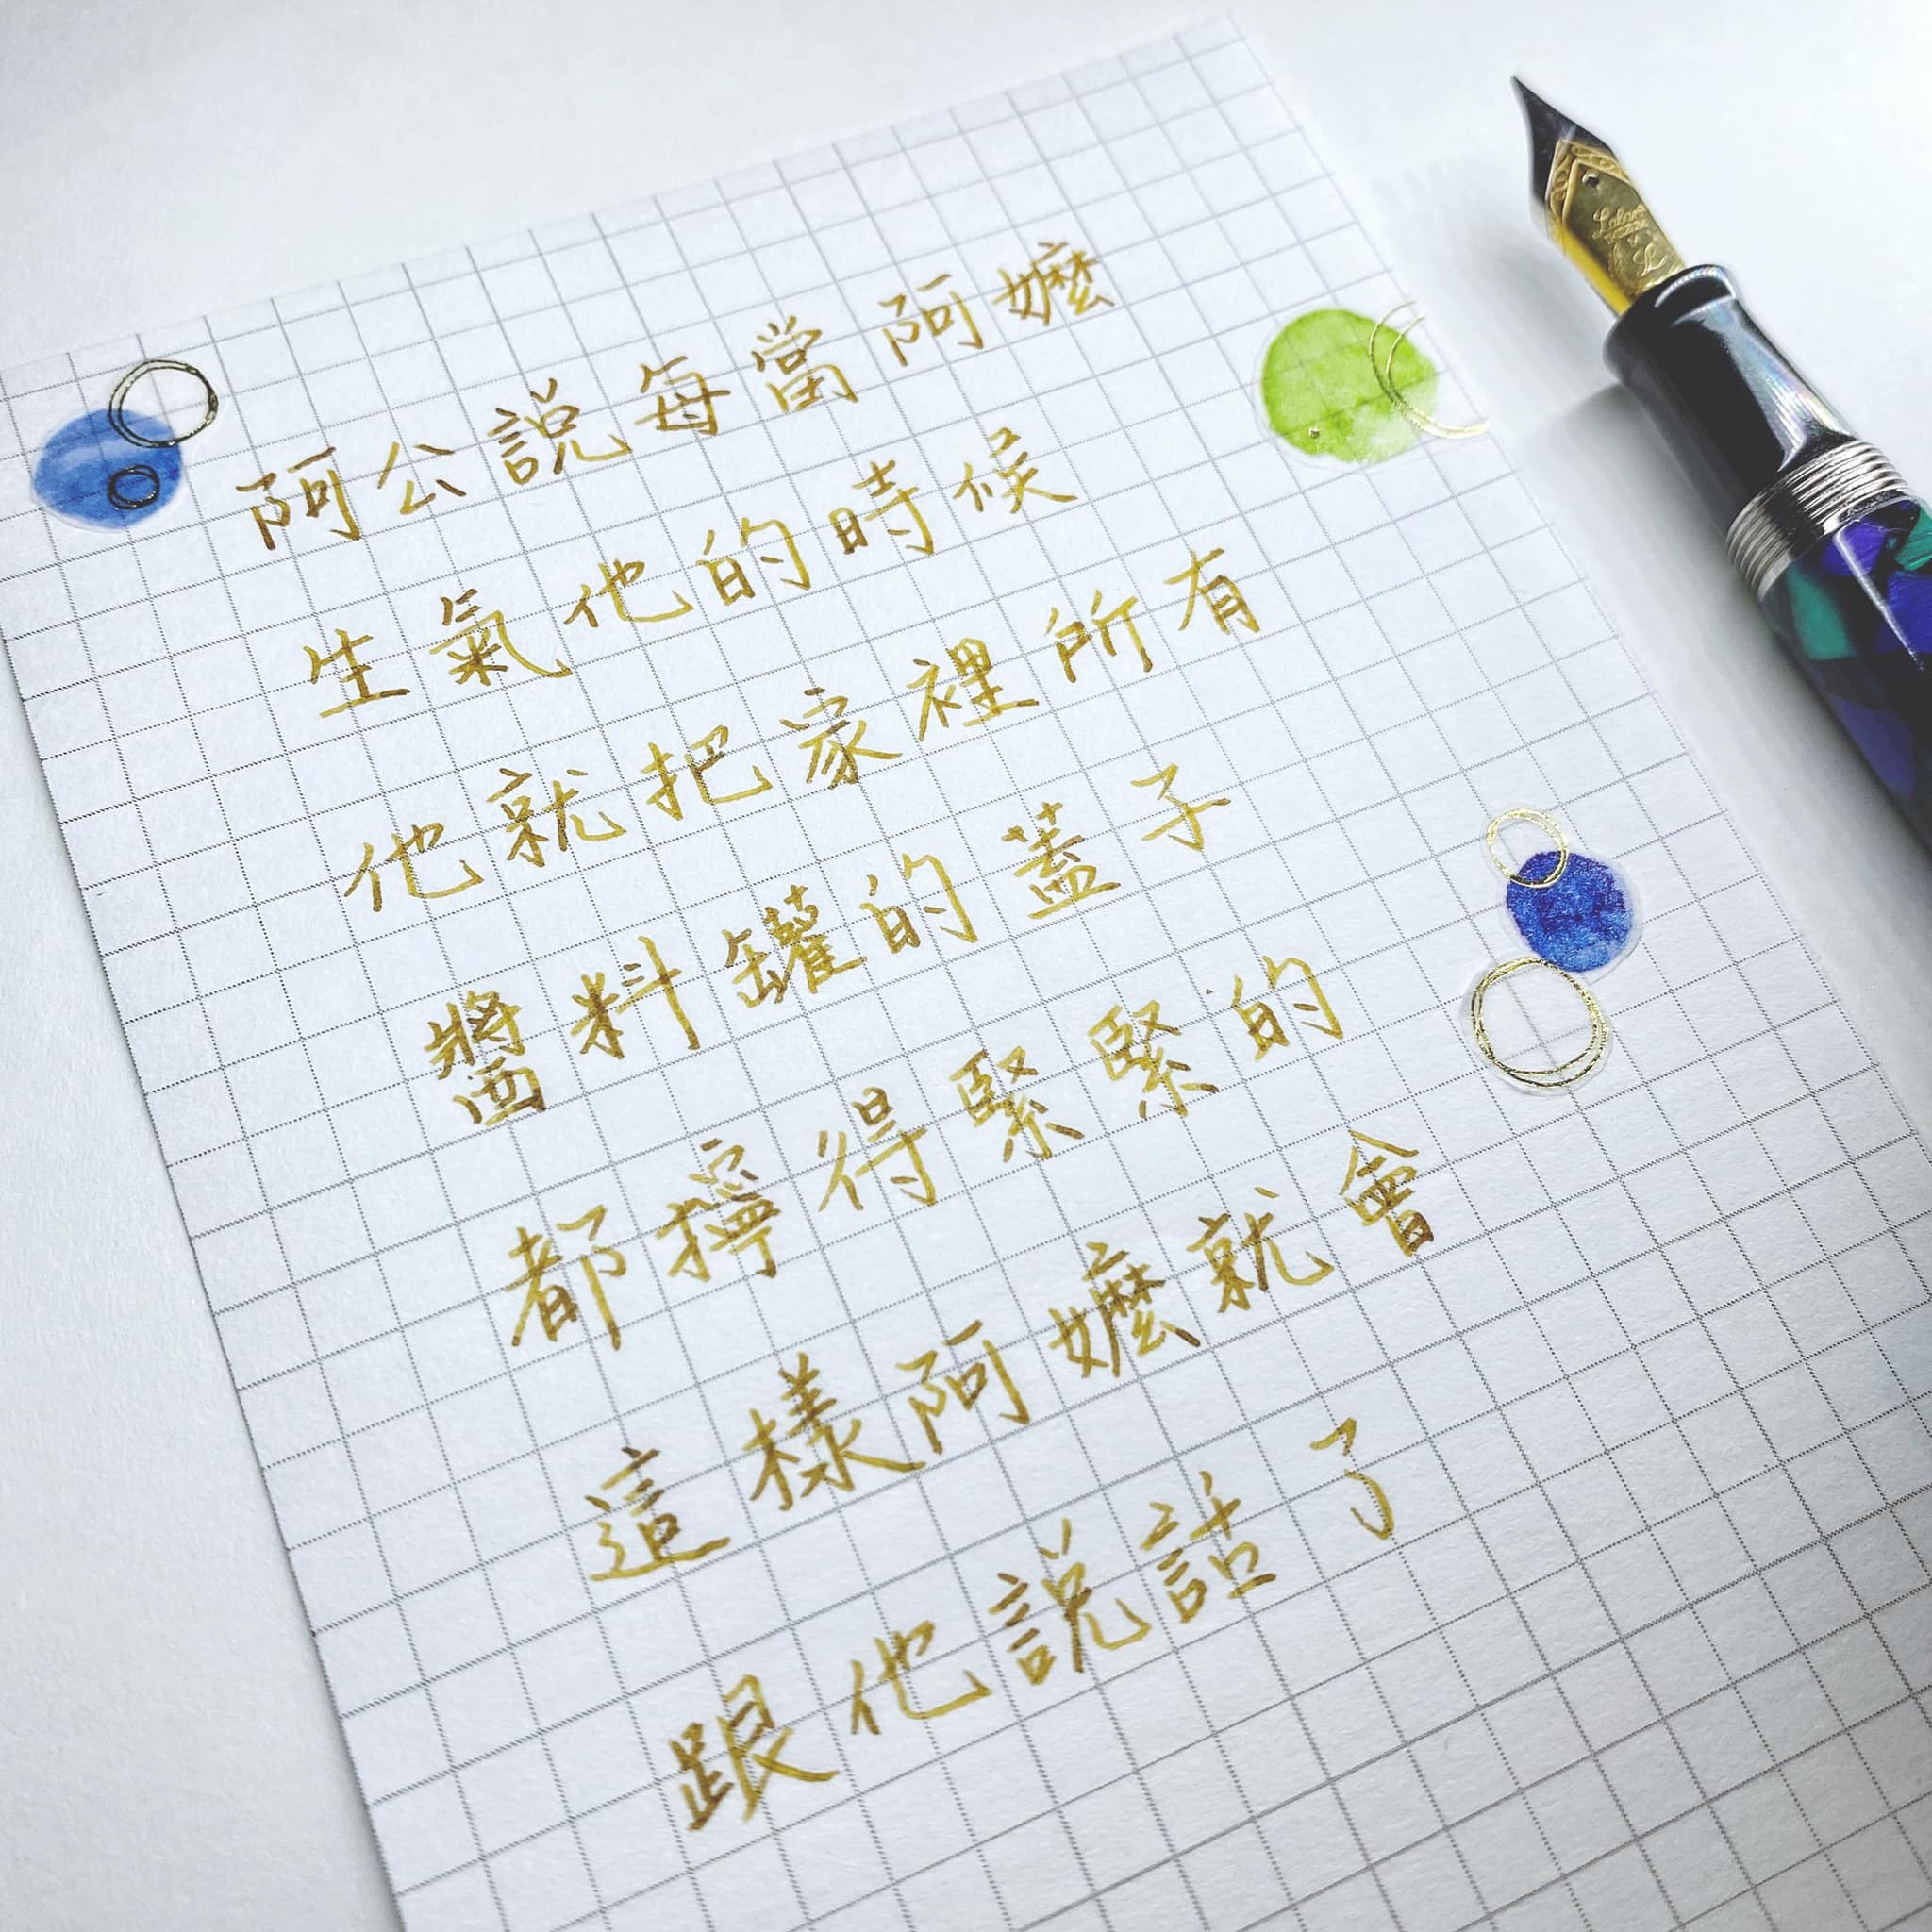 阿公說每當阿嬤
生氣他的時候
他就把家裡所有
醬料罐的蓋子
都擰得緊緊的
這樣阿嬤就會
跟他說話了